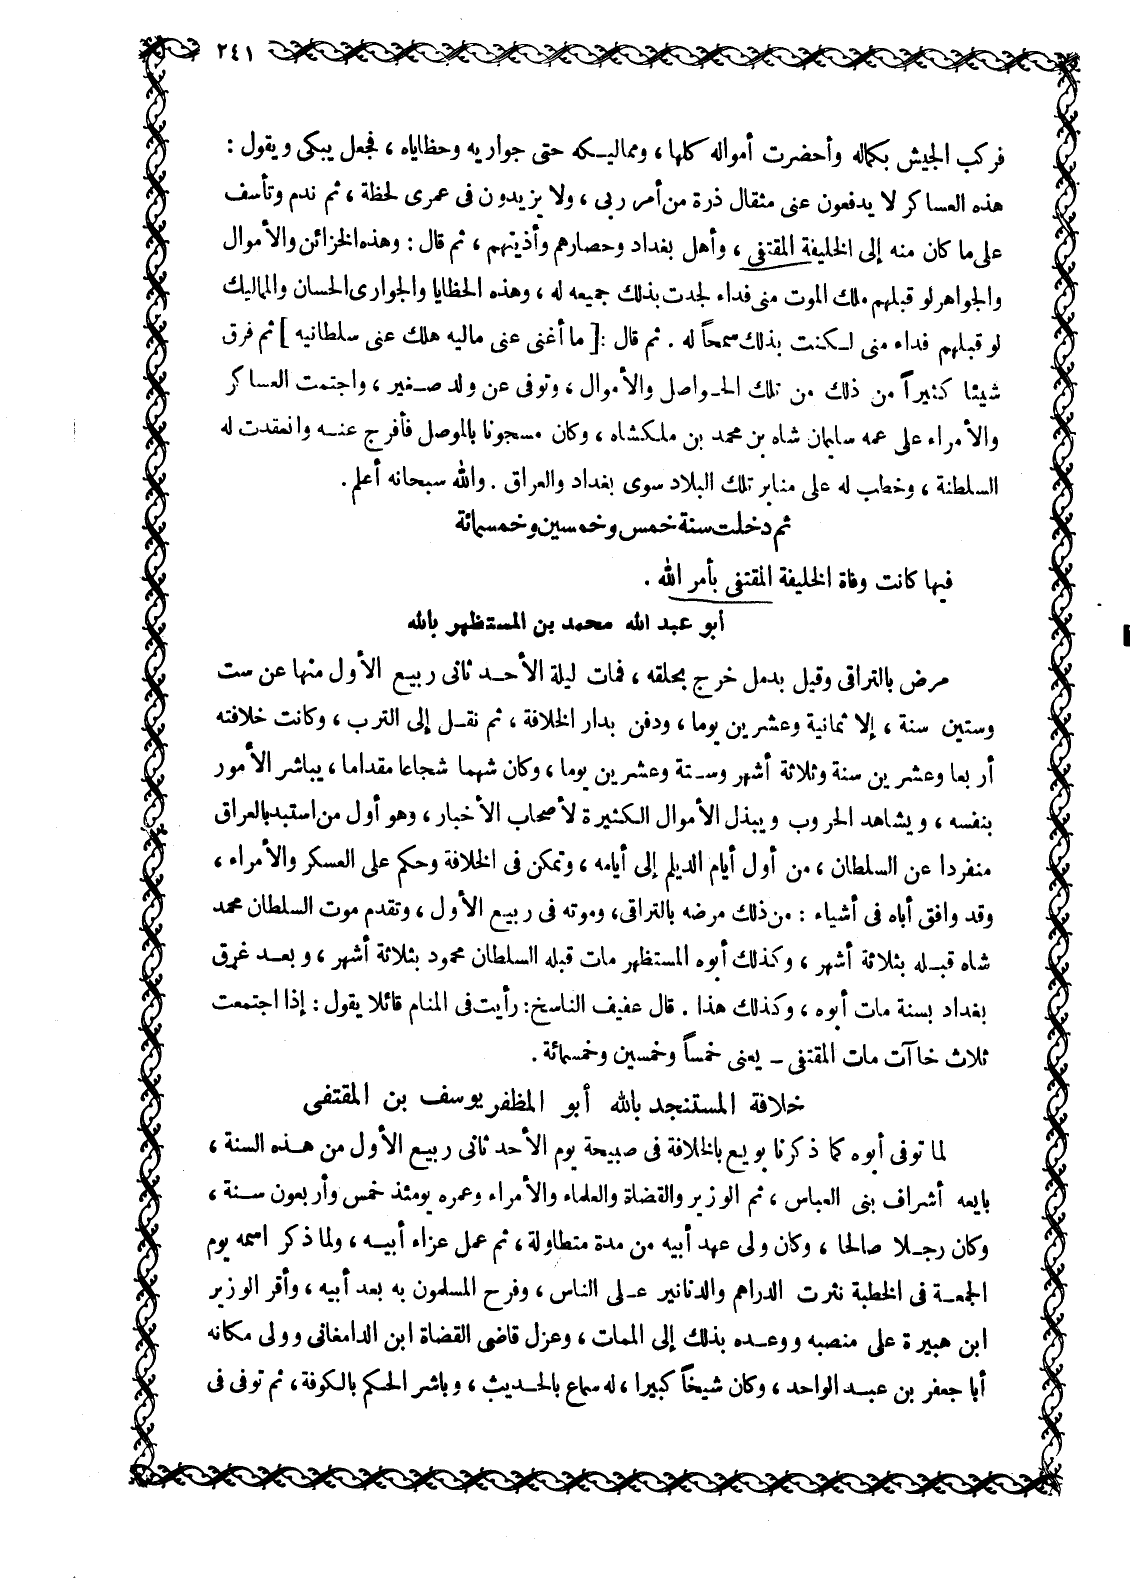 ٢٤١
فركب الجيش بكماله وأحضرت أمواله كلها ، ومماليكه حتى جواريه وحظاياه ، فجعل يبكى ويقول :
هذه العساكر لا يدفعون عنى مثقال ذرة من أمر ربى ، ولا يزيدون فى عمرى لحظة ، ثم ندم وتأسف
على ما كان منه إلى الخليفة المقتفى ، وأهل بغداد وحصارهم وأذيتهم ، ثم قال : وهذه الخزائن والأموال
والجواهر لو قبلهم ملك الموت منى فداء لجدت بذلك جميعه له ، وهذه الحظايا والجوارى الحسان والمماليك
لو قبلهم فداء منى لكنت بذلك سمحاً له . ثم قال : [ ما أغنى عنى ماليه هلك عنى سلطانيه ] ثم فرق
شيئا كثيراً من ذلك من تلك الحواصل والأموال ، وتوفى عن ولد صغير ، واجتمت العساكر
والأمراء على عمه سليمان شاه بن محمد بن ملكشاه ، وكان مسجونا بالموصل فأفرج عنه وانعقدت له
السلطنة ، وخطب له على منابر تلك البلاد سوى بغداد والعراق . والله سبحانه أعلم .
ثم دخلت سنة خمس وخمسين وخمسمائة
فيها كانت وفاة الخليفة المقتفى بأمر الله .
أبو عبد الله محمد بن المستظهر بالله
مرض بالتراقى وقيل بدمل خرج بحلقه ، فمات ليلة الأحد ثانى ربيع الأول منها عن ست
وستين سنة ، إلا ثمانية وعشرين يوما ، ودفن بدار الخلافة ، ثم نقل إلى الترب ، وكانت خلافته
أربعا وعشرين سنة وثلاثة أشهر وستة وعشرين يوما ، وكان شهما شجاعا مقداما ، يباشر الأمور
بنفسه ، ويشاهد الحروب ويبذل الأموال الكثيرة لأصحاب الأخبار ، وهو أول من استبد بالعراق
منفردا عن السلطان ، من أول أيام الديلم إلى أيامه ، وتمكن فى الخلافة وحكم على العسكر والأمراء ،
وقد وافق أباه فى أشياء : من ذلك مرضه بالتراقى ، وموته فى ربيع الأول ، وتقدم موت السلطان محمد
شاه قبله بثلاثة أشهر ، وكذلك أبوه المستظهر مات قبله السلطان محمود بثلاثة أشهر ، وبعد غرق
بغداد بسنة مات أبوه ، وكذلك هذا . قال عفيف الناسخ : رأيت فى المنام قائلا يقول : إذا اجتمعت
ثلاث خاآت مات المقتفى ـ يعنى خمساً وخمسين وخمسمائة .
خلافة المستنجد بالله أبو المظفر يوسف بن المقتفى
لما توفى أبوه كما ذكرنا بويع بالخلافة فى صبيحة يوم الأحد ثانى ربيع الأول من هذه السنة ،
بايعه أشراف بنى العباس ، ثم الوزير والقضاة والعلماء والأمراء وعمره يومئذ خمس وأربعون سنة ،
وكان رجلا صالحا ، وكان ولى عهد أبيه من مدة متطاولة ، ثم عمل عزاء أبيه ، ولما ذكر اسمه يوم
الجمعة فى الخطبة نثرت الدراهم والدنانير على الناس ، وفرح المسلمون به بعد أبيه ، وأقر الوزير
ابن هبيرة على منصبه ووعده بذلك إلى الممات ، وعزل قاضى القضاة ابن الدامغانى وولى مكانه
أبا جعفر بن عبد الواحد ، وكان شيخاً كبيرا ، له سماع بالحديث ، وباشر الحكم بالكوفة ، ثم توفى فى